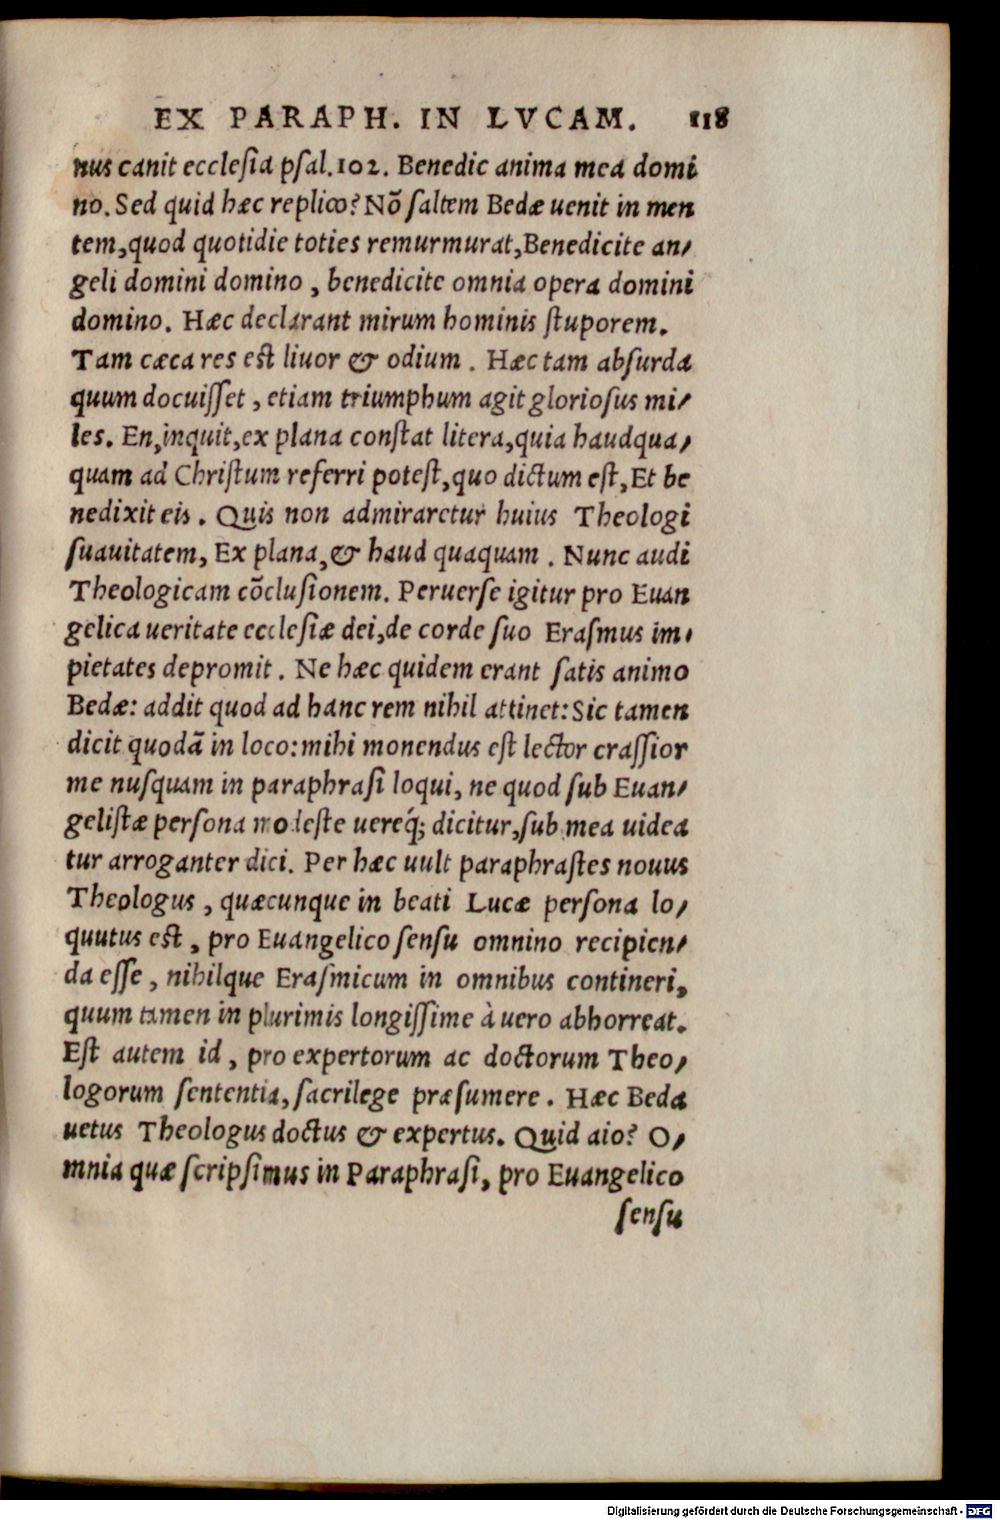 EX PARAPH. IN LVCAM. 118
nus canit ecclesia psal.102. Benedic anima mea domi
no. Sed quid hæc replico? Nõ saltem Bedæ uenit in men
tem,quod quotidie toties remurmurat,Benedicite an/
geli domini domino , benedicite omnia opera domini
domino. Hæc declarant mirum hominis stuporem.
Tam cæca res est liuor & odium . Hæc tam absurda
quum docuisset , etiam triumphum agit gloriosus mi/
les. En,inquit,ex plana constat litera,quia haudqua/
quam ad Christum referri potest,quo dictum est,Et be
nedixit eis . Quis non admiraretur huius Theologi
suauitatem, Ex plana,& haud quaquam . Nunc audi
Theologicam cõclusionem. Peruerse igitur pro Euan
gelica ueritate ecclesiæ dei,de corde suo Erasmus im/
pietates depromit . Ne hæc quidem erant satis animo
Bedæ: addit quod ad hanc rem nihil attinet: Sic tamen
dicit quodã in loco: mihi monendus est lector crassior
me nusquam in paraphrasi loqui, ne quod sub Euan/
gelistæ persona modeste uereq́; dicitur,sub mea uidea
tur arroganter dici. Per hæc uult paraphrastes nouus
Theologus , quæcunque in beati Lucæ persona lo/
quutus est , pro Euangelico sensu omnino recipien/
da esse , nihilque Erasmicum in omnibus contineri,
quum tamen in plurimis longissime à uero abhorreat.
Est autem id , pro expertorum ac doctorum Theo/
logorum sententia, sacrilege præsumere . Hæc Beda
uetus Theologus doctus & expertus. Quid aio? O/
mnia quæ scripsimus in Paraphrasi, pro Euangelico
sensu
Digitalisierung gefördert durch die Deutsche Forschungsgemeinschaft - DFG